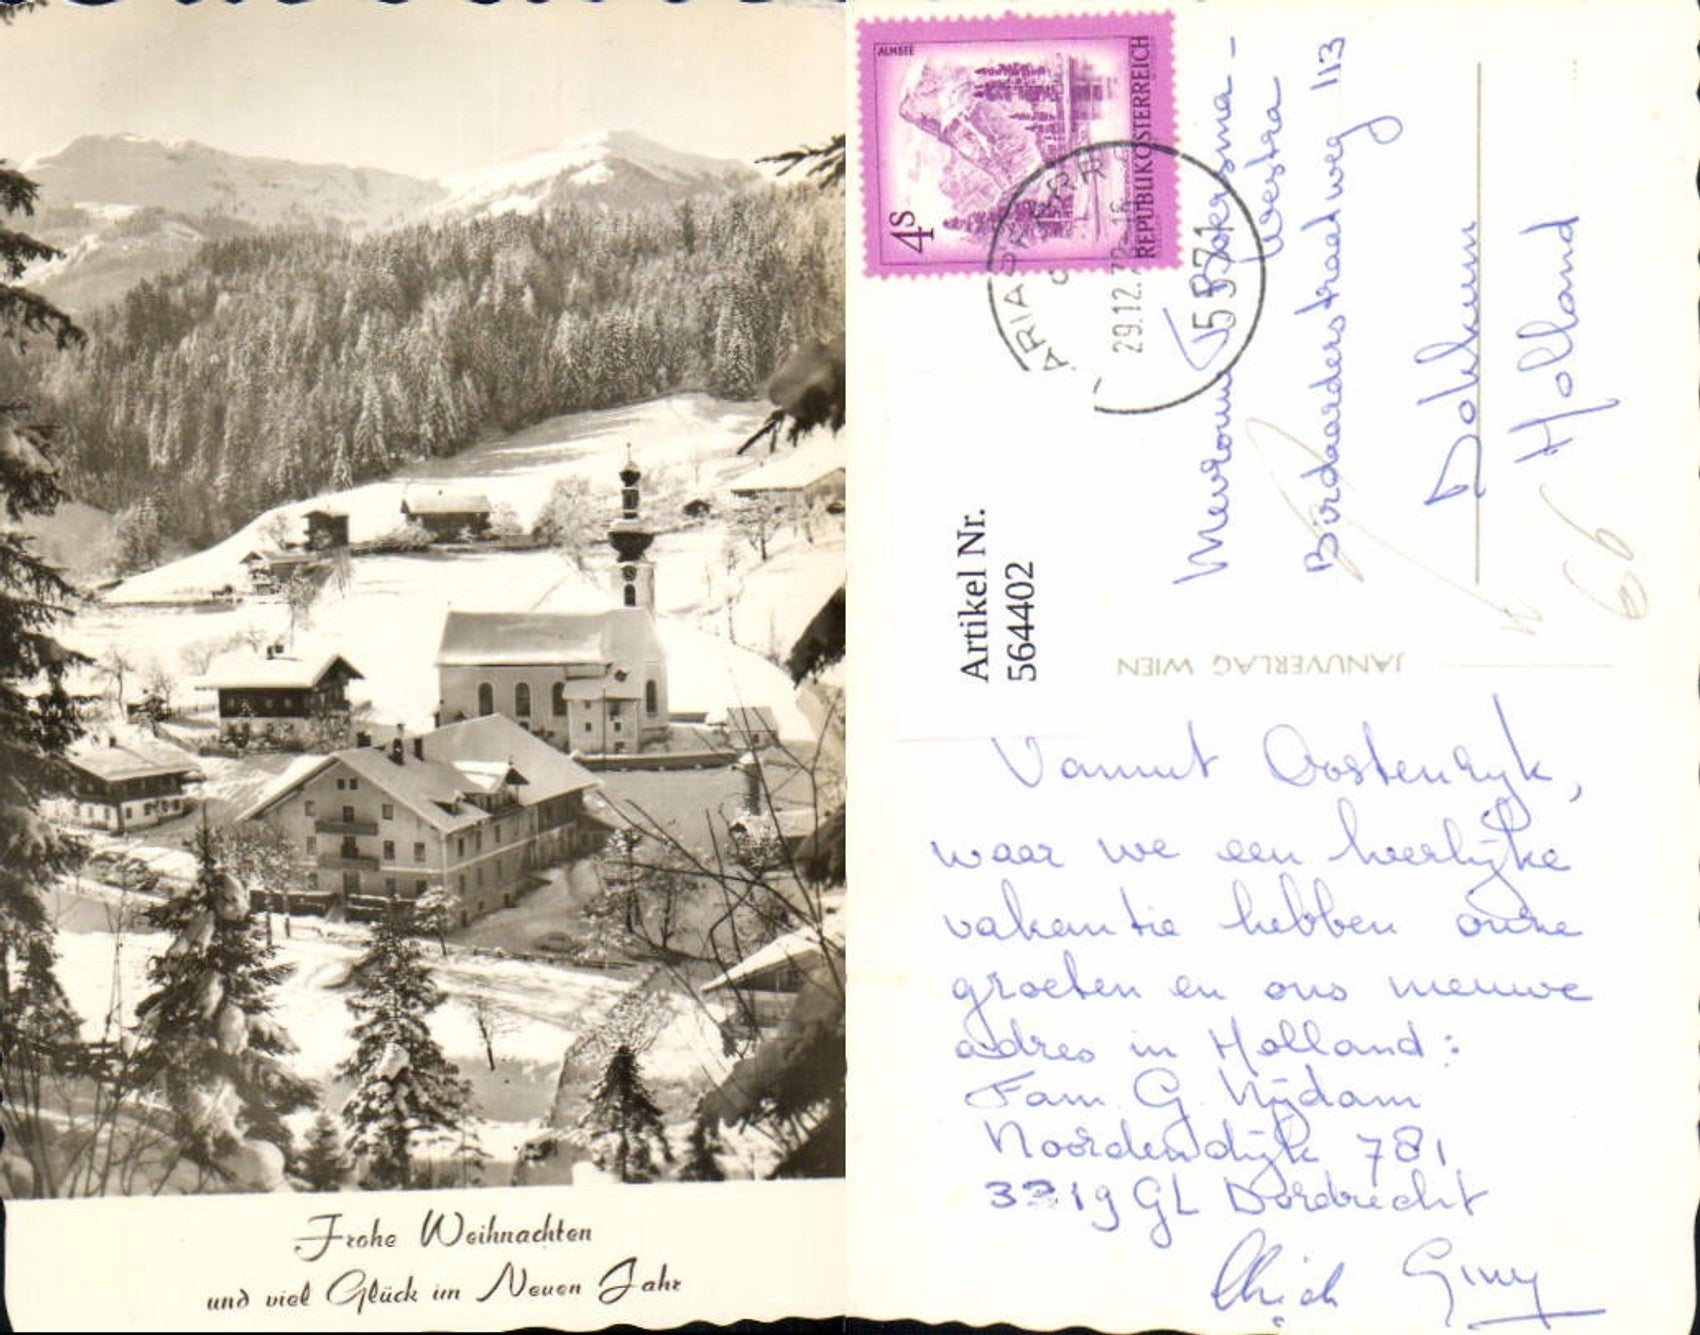 Frohe Weihnachten
und viel Glück im Neuen Jahr
ALMSEE
4s
REPUBLIK ÖSTERREICH
29.12.72-16
5571
Mevrouw T. Boersma-
Westra
Birdaarderstraatweg 113
Dokkum
Holland
66
Artikel Nr.
564402
JANUVERLAG WIEN
Vanuit Oostenryk,
waar we een heerlijke
vakantie hebben onze
groeten en ons nieuwe
adres in Holland:
Fam. G. Nijdam
Noordendijk 781
3319 GL Dordrecht
Giny